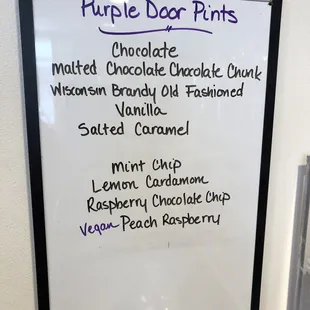 Purple Door Pints
Chocolate
Malted Chocolate Chocolate Chunk
Wisconsin Brandy Old Fashioned
Vanilla
Salted Caramel
Mint Chip
Lemon Cardamom
Raspberry Chocolate Chip
Vegan Peach Raspberry